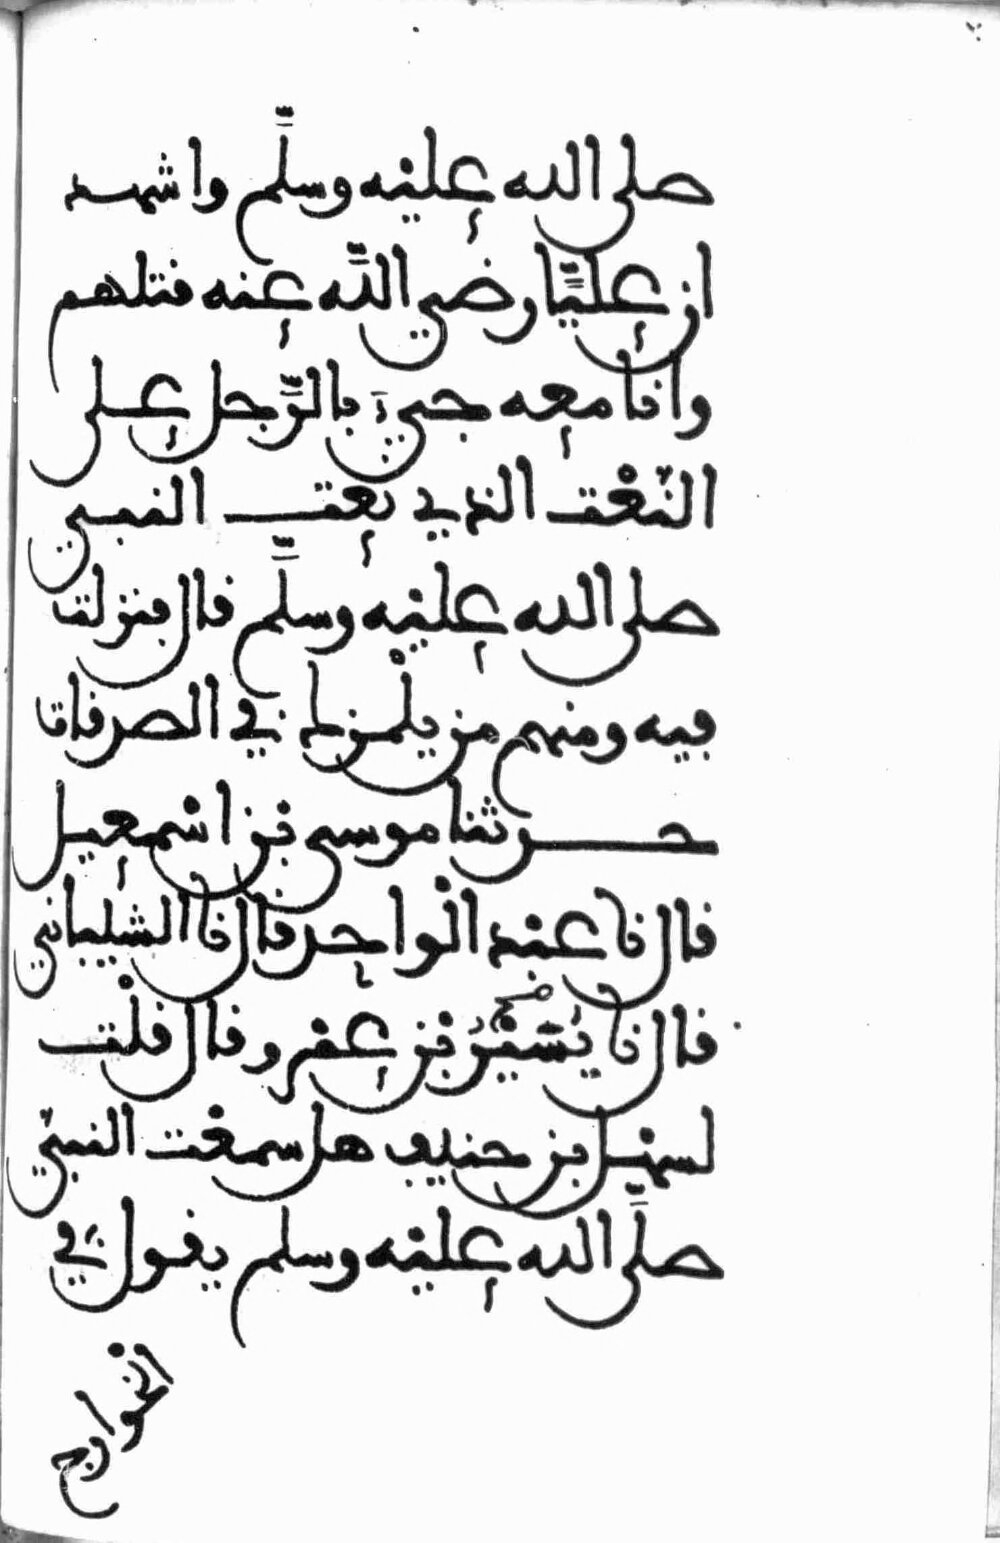 صلى الله عليه وسلم واشهد
ان عليّا رضي اللّه عنه قتلهم
وانا معه جيء بالرّجل على
النّعْت الذي نعت النبي
صلى الله عليه وسلّم قال فنزلت
فيه ومنهم من يلْمزك في الصدقات
حدثنا موسى بن اسمعيل
قال نا عبْد الْواحد قال نا الشيباني
قال نا يُسَيْرُ بن عمْرو قال قلْت
لسهْل بن حنيف هل سمعْت النبيّ
صلّى الله عليه وسلم يقول في
الخوارج